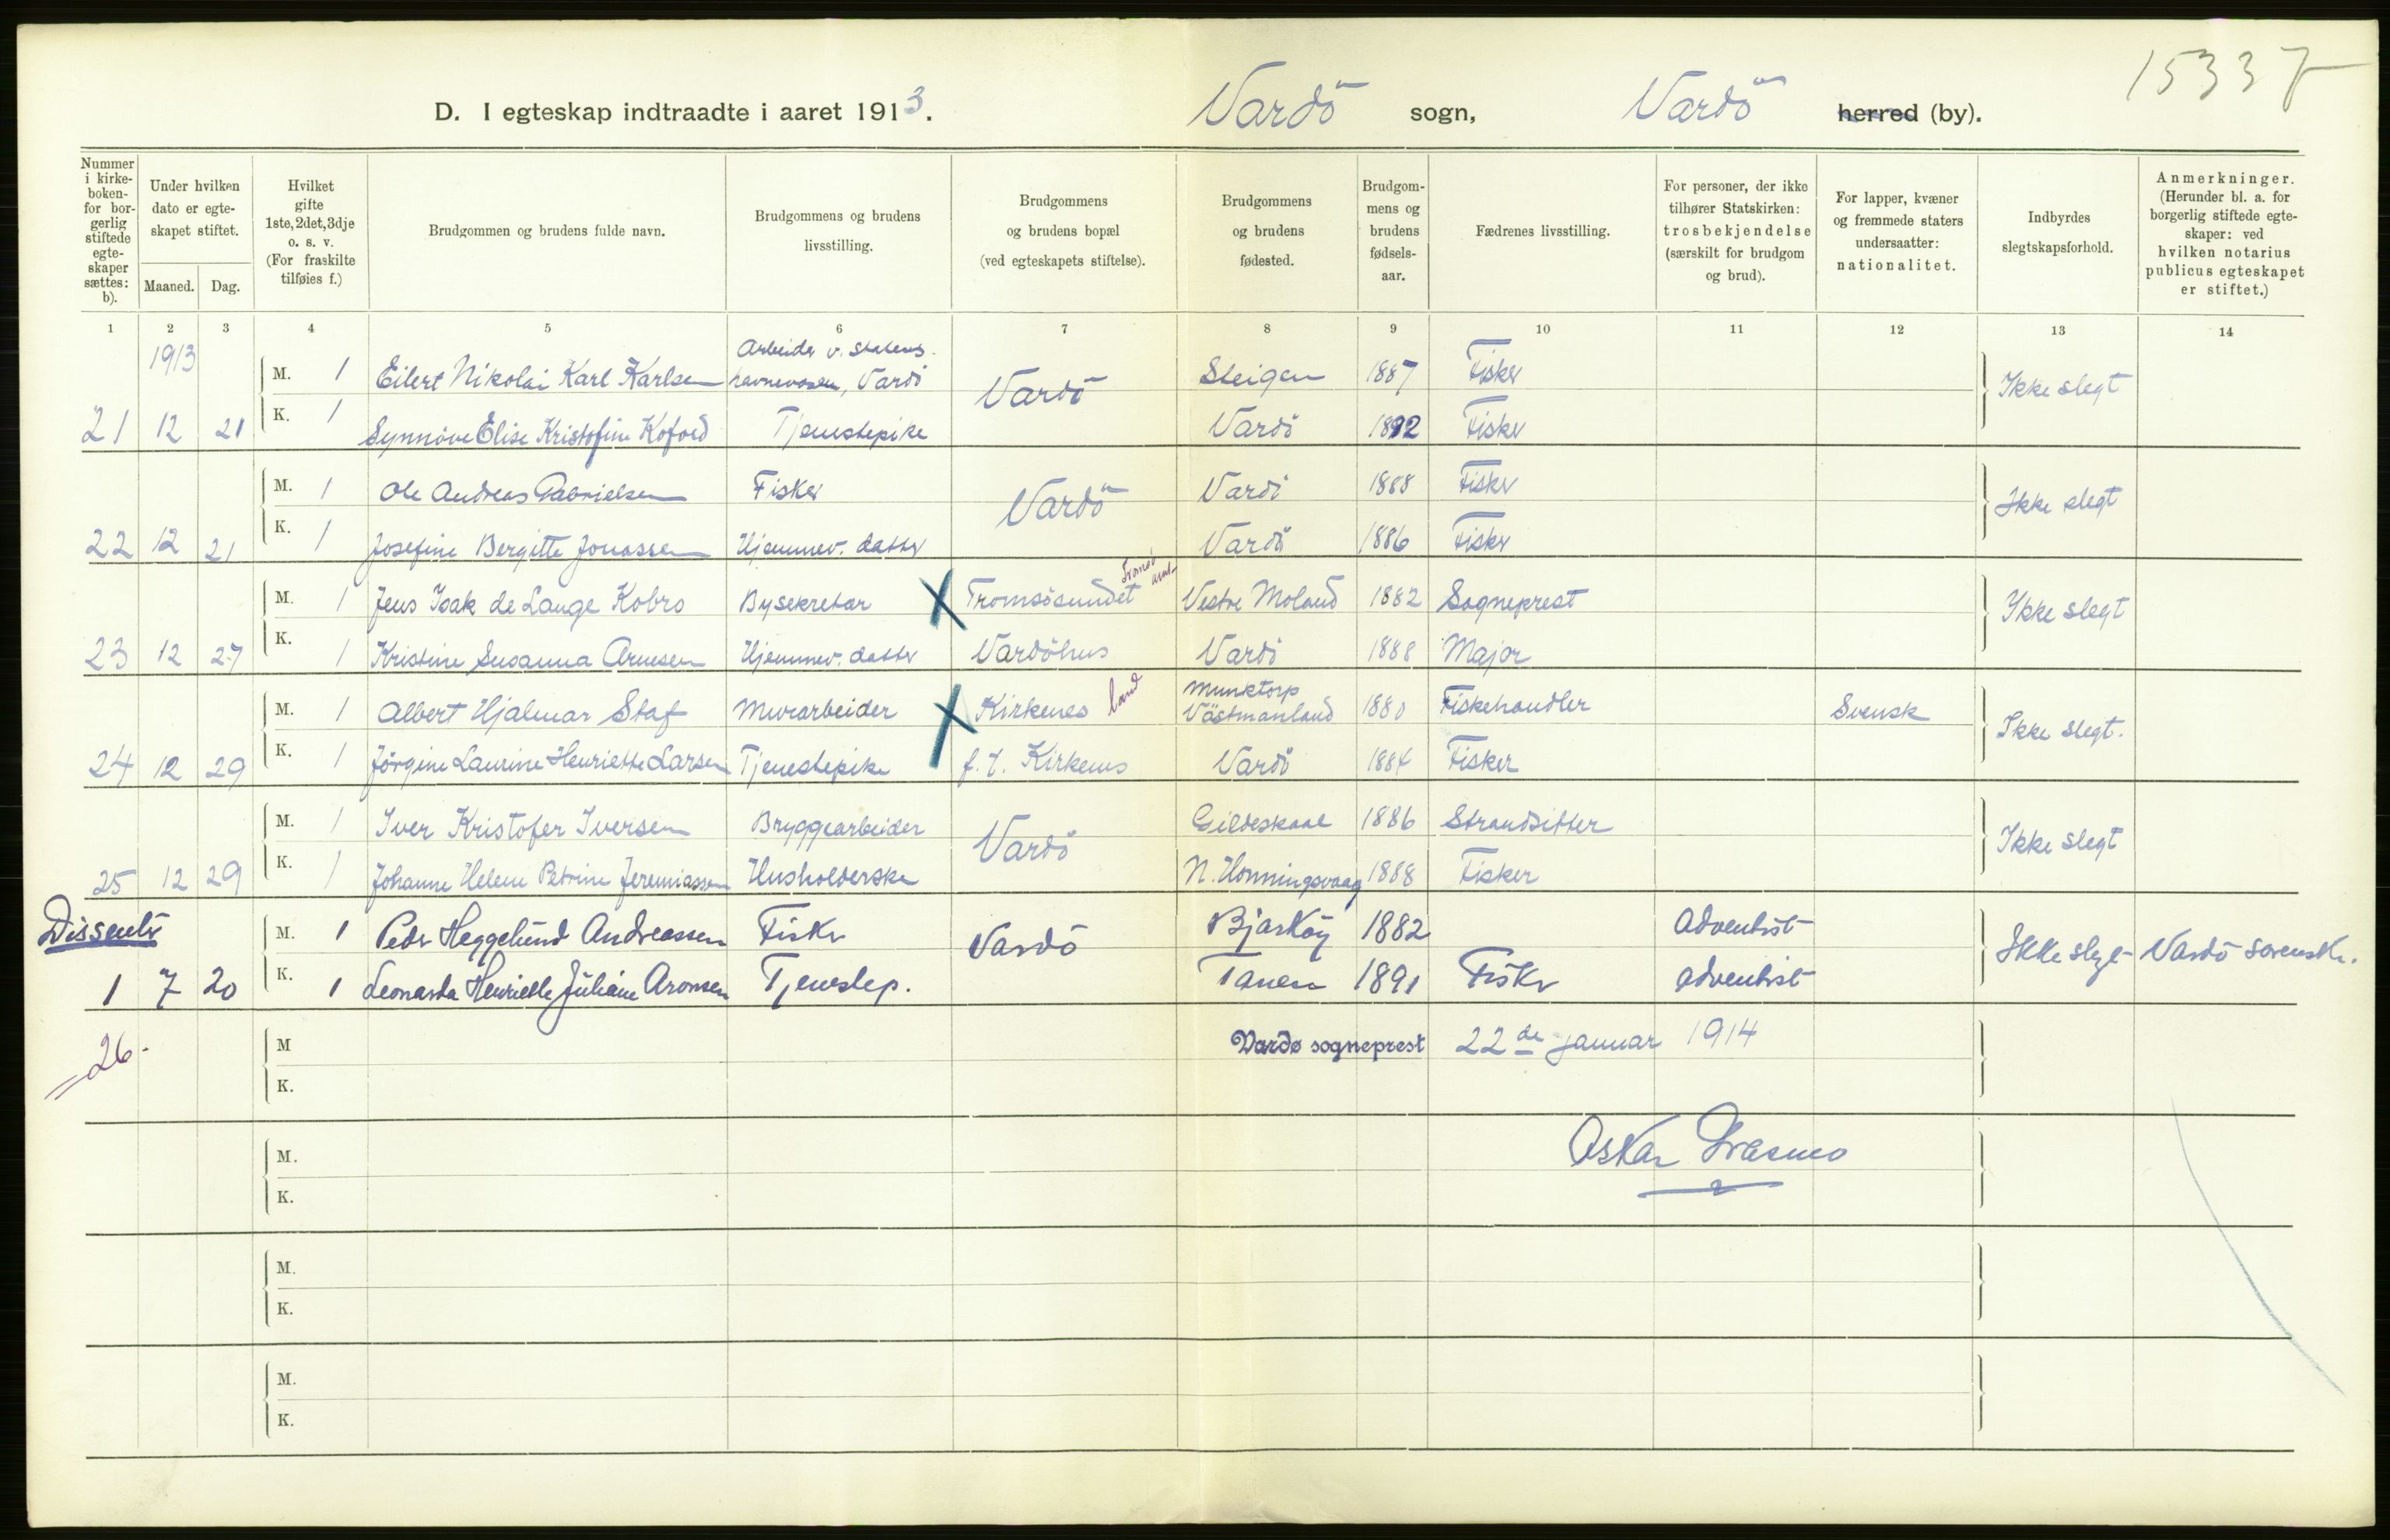 15337
D. I egteskap indtraadte i aaret 1913. Vardö sogn, Vardö herred (by).
Nummer i kirkeboken- for borgerlig stiftede egteskaper sættes: b).
Under hvilken dato er egteskapet stiftet.
Maaned. Dag.
Hvilket gifte 1ste, 2det, 3dje o. s. v. (For fraskilte tilføies f.)
Brudgommen og brudens fulde navn.
Brudgommens og brudens livsstilling.
Brudgommens og brudens bopæl (ved egteskapets stiftelse).
Brudgommens og brudens fødested.
Brudgommens og brudens fødselsaar.
Fædrenes livsstilling.
For personer, der ikke tilhører Statskirken: trosbekjendelse (særskilt for brudgom og brud).
For lapper, kvæner og fremmede staters undersaatter: nationalitet.
Indbyrdes slegtskapsforhold.
Anmerkninger. (Herunder bl. a. for borgerlig stiftede egteskaper: ved hvilken notarius publicus egteskapet er stiftet.)
1 2 3 4 5 6 7 8 9 10 11 12 13 14
1913
M. 1 Eilert Nikolai Karl Karlsen Arbeider v. Statens havnevæsen, Vardö Vardö Steigen 1887 Fisker Ikke slegt
21 12 21 K. 1 Synnöve Elise Kristofine Kofoed Tjenestepike Vardö 1892 Fisker
M. 1 Ole Andreas Gabrielsen Fisker Vardö Vardö 1888 Fisker Ikke slegt
22 12 21 K. 1 Josefine Bergitte Jonassen Hjemmev. datter Vardö 1886 Fisker
M. 1 Jens Isak de Lange Kobro Bysekretær X Tromsösundet Tromsö amt Vestre Moland 1882 Sogneprest Ikke slegt
23 12 27 K. 1 Kristine Susanna Arnesen Hjemmev. datter Vardöhus Vardö 1888 Major
M. 1 Albert Hjalmar Staf Murarbeider X Kirkenes land Munktorp Västmanland 1880 Fiskehandler Svensk Ikke slegt.
24 12 29 K. 1 Jörgine Laurine Henriette Larsen Tjenestepike f. t. Kirkenes Vardö 1884 Fisker
M. 1 Iver Kristofer Iversen Bryggearbeider Vardö Gildeskaal 1886 Strandsitter Ikke slegt
25 12 29 K. 1 Johanne Helene Petrine Jeremiassen Husholderske N. Honningsvaag 1888 Fisker
Dissenter
M. 1 Peder Heggelund Andreassen Fisker Vardö Bjarköy 1882 Adventist Ikke slegt Vardö sorensk.
1 7 20 K. 1 Leonarda Henriette Juliane Aronsen Tjenestep. Tanen 1891 Fisker adventist
26.
M Vardø sogneprest 22de januar 1914
K.
M. Oskar
K.
M.
K.
M.
K.